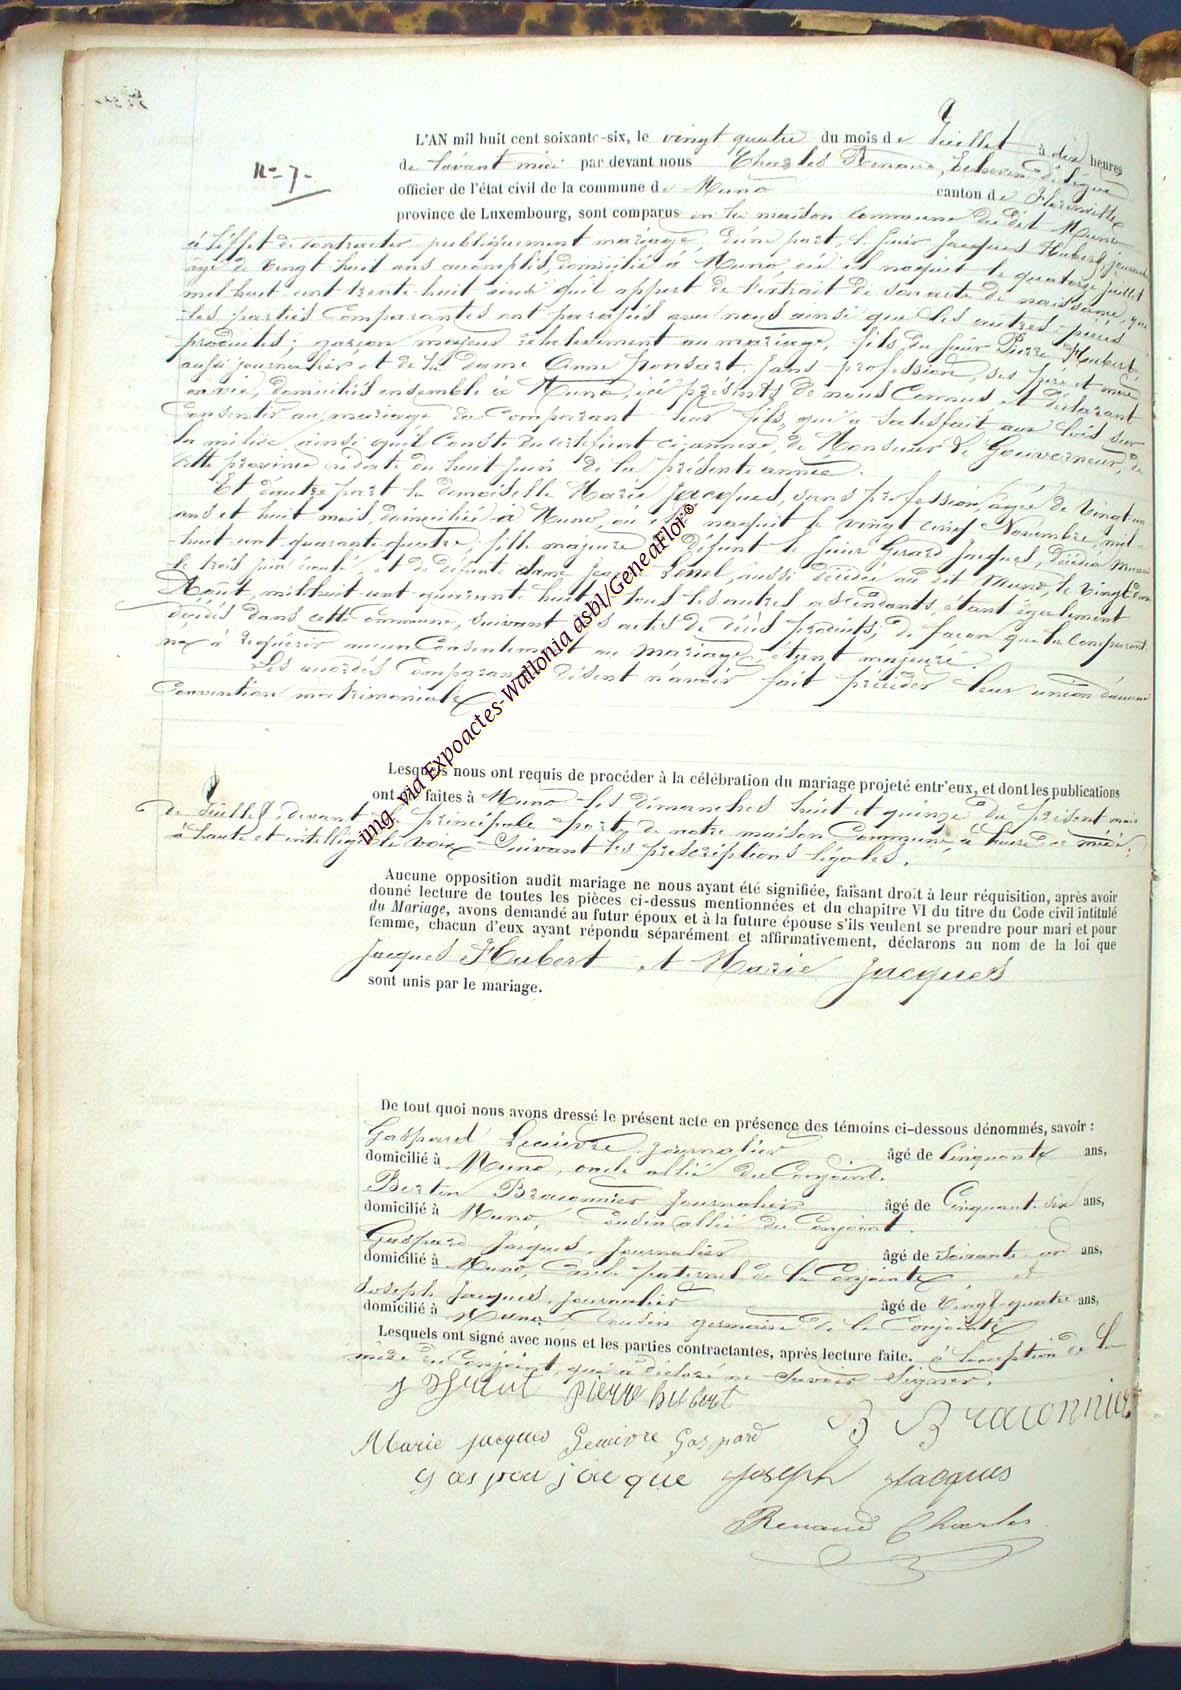 N° 7.
L'AN mil huit cent soixante-six, le vingt quatre du mois de Juillet à dix heures
de l'avant midi par devant nous Charles Renaud, Echevin délégué
officier de l'état civil de la commune de Muno canton de Florenville
province de Luxembourg, sont comparus en la maison commune du dit Muno
à l'effet de contracter publiquement mariage, d'une part, le sieur Jacques Hubert, journalier
âgé de vingt huit ans accomplis, domicilié à Muno, où il naquit le quatorze juillet
mil huit cent trente huit ainsi qu'il appert de l'extrait de son acte de naissance, que
les parties comparantes ont parafés avec nous ainsi que les autres pièces
produites; garçon majeur relativement au mariage, fils du sieur Pierre Hubert,
aussi journalier et de la dame Anne Ponsart, sans profession, ses père et mère
en vie, domiciliés ensemble à Muno, ici présents de nous connus et déclarant
consentir au mariage du comparant leur fils, qui a satisfait aux lois sur
la milice ainsi qu'il conste du certificat ci-annexé, de Monsieur le Gouverneur, de
cette province en date du huit Juin de la présente année.
Et d'autre part la demoiselle Marie Jacques, sans profession, âgée de vingt un
ans et huit mois, domiciliée à Muno, où elle naquit le vingt cinq Novembre, mil-
huit cent quarante quatre, fille majeure de défunt le sieur Gérard Jacques, décédé Muno
le trois juin écoulé, et de défunte dame Jeanne, aussi décédée au dit Muno, le vingt deux
Août, mil huit cent quarante huit, tous les autres ascendants, étant également
décédés dans cette commune, suivant les actes de décès produits; de façon que la comparante
n'a à requérir aucun consentement au mariage, étant majeure.
Les accordés comparants disent n'avoir fait précéder leur union d'aucune
convention matrimoniale.
Lesquels nous ont requis de procéder à la célébration du mariage projeté entr'eux, et dont les publications
ont été faites à Muno les dimanches huit et quinze du présent mois
de Juillet, devant la principale porte de notre maison commune, à l'heure de midi,
à haute et intelligible voix suivant les prescriptions légales.
Aucune opposition audit mariage ne nous ayant été signifiée, faisant droit à leur réquisition, après avoir
donné lecture de toutes les pièces ci-dessus mentionnées et du chapitre VI du titre du Code civil intitulé
du Mariage, avons demandé au futur époux et à la future épouse s'ils veulent se prendre pour mari et pour
femme, chacun d'eux ayant répondu séparément et affirmativement, déclarons au nom de la loi que
Jacques Hubert et Marie Jacques
sont unis par le mariage.
De tout quoi nous avons dressé le présent acte en présence des témoins ci-dessous dénommés, savoir :
Gaspard Lecuivre, journalier âgé de Cinquante ans,
domicilié à Muno, oncle allié du Conjoint.
Bertin Braconnier journalier âgé de Cinquante six ans,
domicilié à Muno, Cousin allié du Conjoint.
Gaspard Jacques, journalier âgé de soixante un ans,
domicilié à Muno, Oncle paternel de la Conjointe, et
Joseph Jacques, journalier âgé de Vingt-quatre ans,
domicilié à Muno Cousin germain de la Conjointe
Lesquels ont signé avec nous et les parties contractantes, après lecture faite. à l'exception de la
mère du Conjoint, qui a déclaré ne savoir signer.
J Hubert Pierre hubert
B Braconnier
Marie jacques Lecuivre Gaspard
gaspar jacque Joseph Jacques
Renaud Charles
img via Expoactes-Wallonia asbl/GeneaFlor©